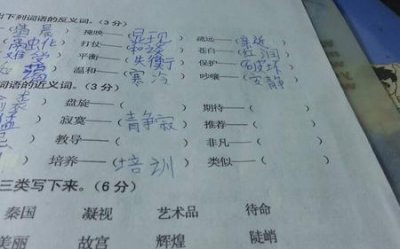 写下列词语的反义词。(3分)
掩映——(显现) 疏远——(亲近)
打仗——( 苍白——(红润)
平衡——(失衡) 保护——(
温和——(寒冷) 吵嚷——(安静)
词语的近义词。(3分)
盘旋——( ) 期待——( )
寂寞——( 静寂) 推荐——( )
教导——( ) 非凡——( )
培养——(培训) 类似——( )
三类写下来。(6分)
秦国 凝视 艺术品 待命
美丽 故宫 辉煌 陡峭